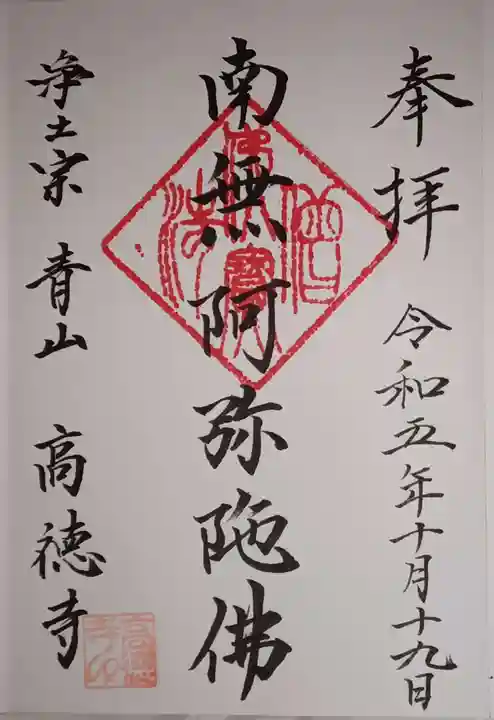 奉拝 令和五年十月十九日
南無阿弥陀佛
佛法僧寳
浄土宗 青山 高徳寺
高徳寺印